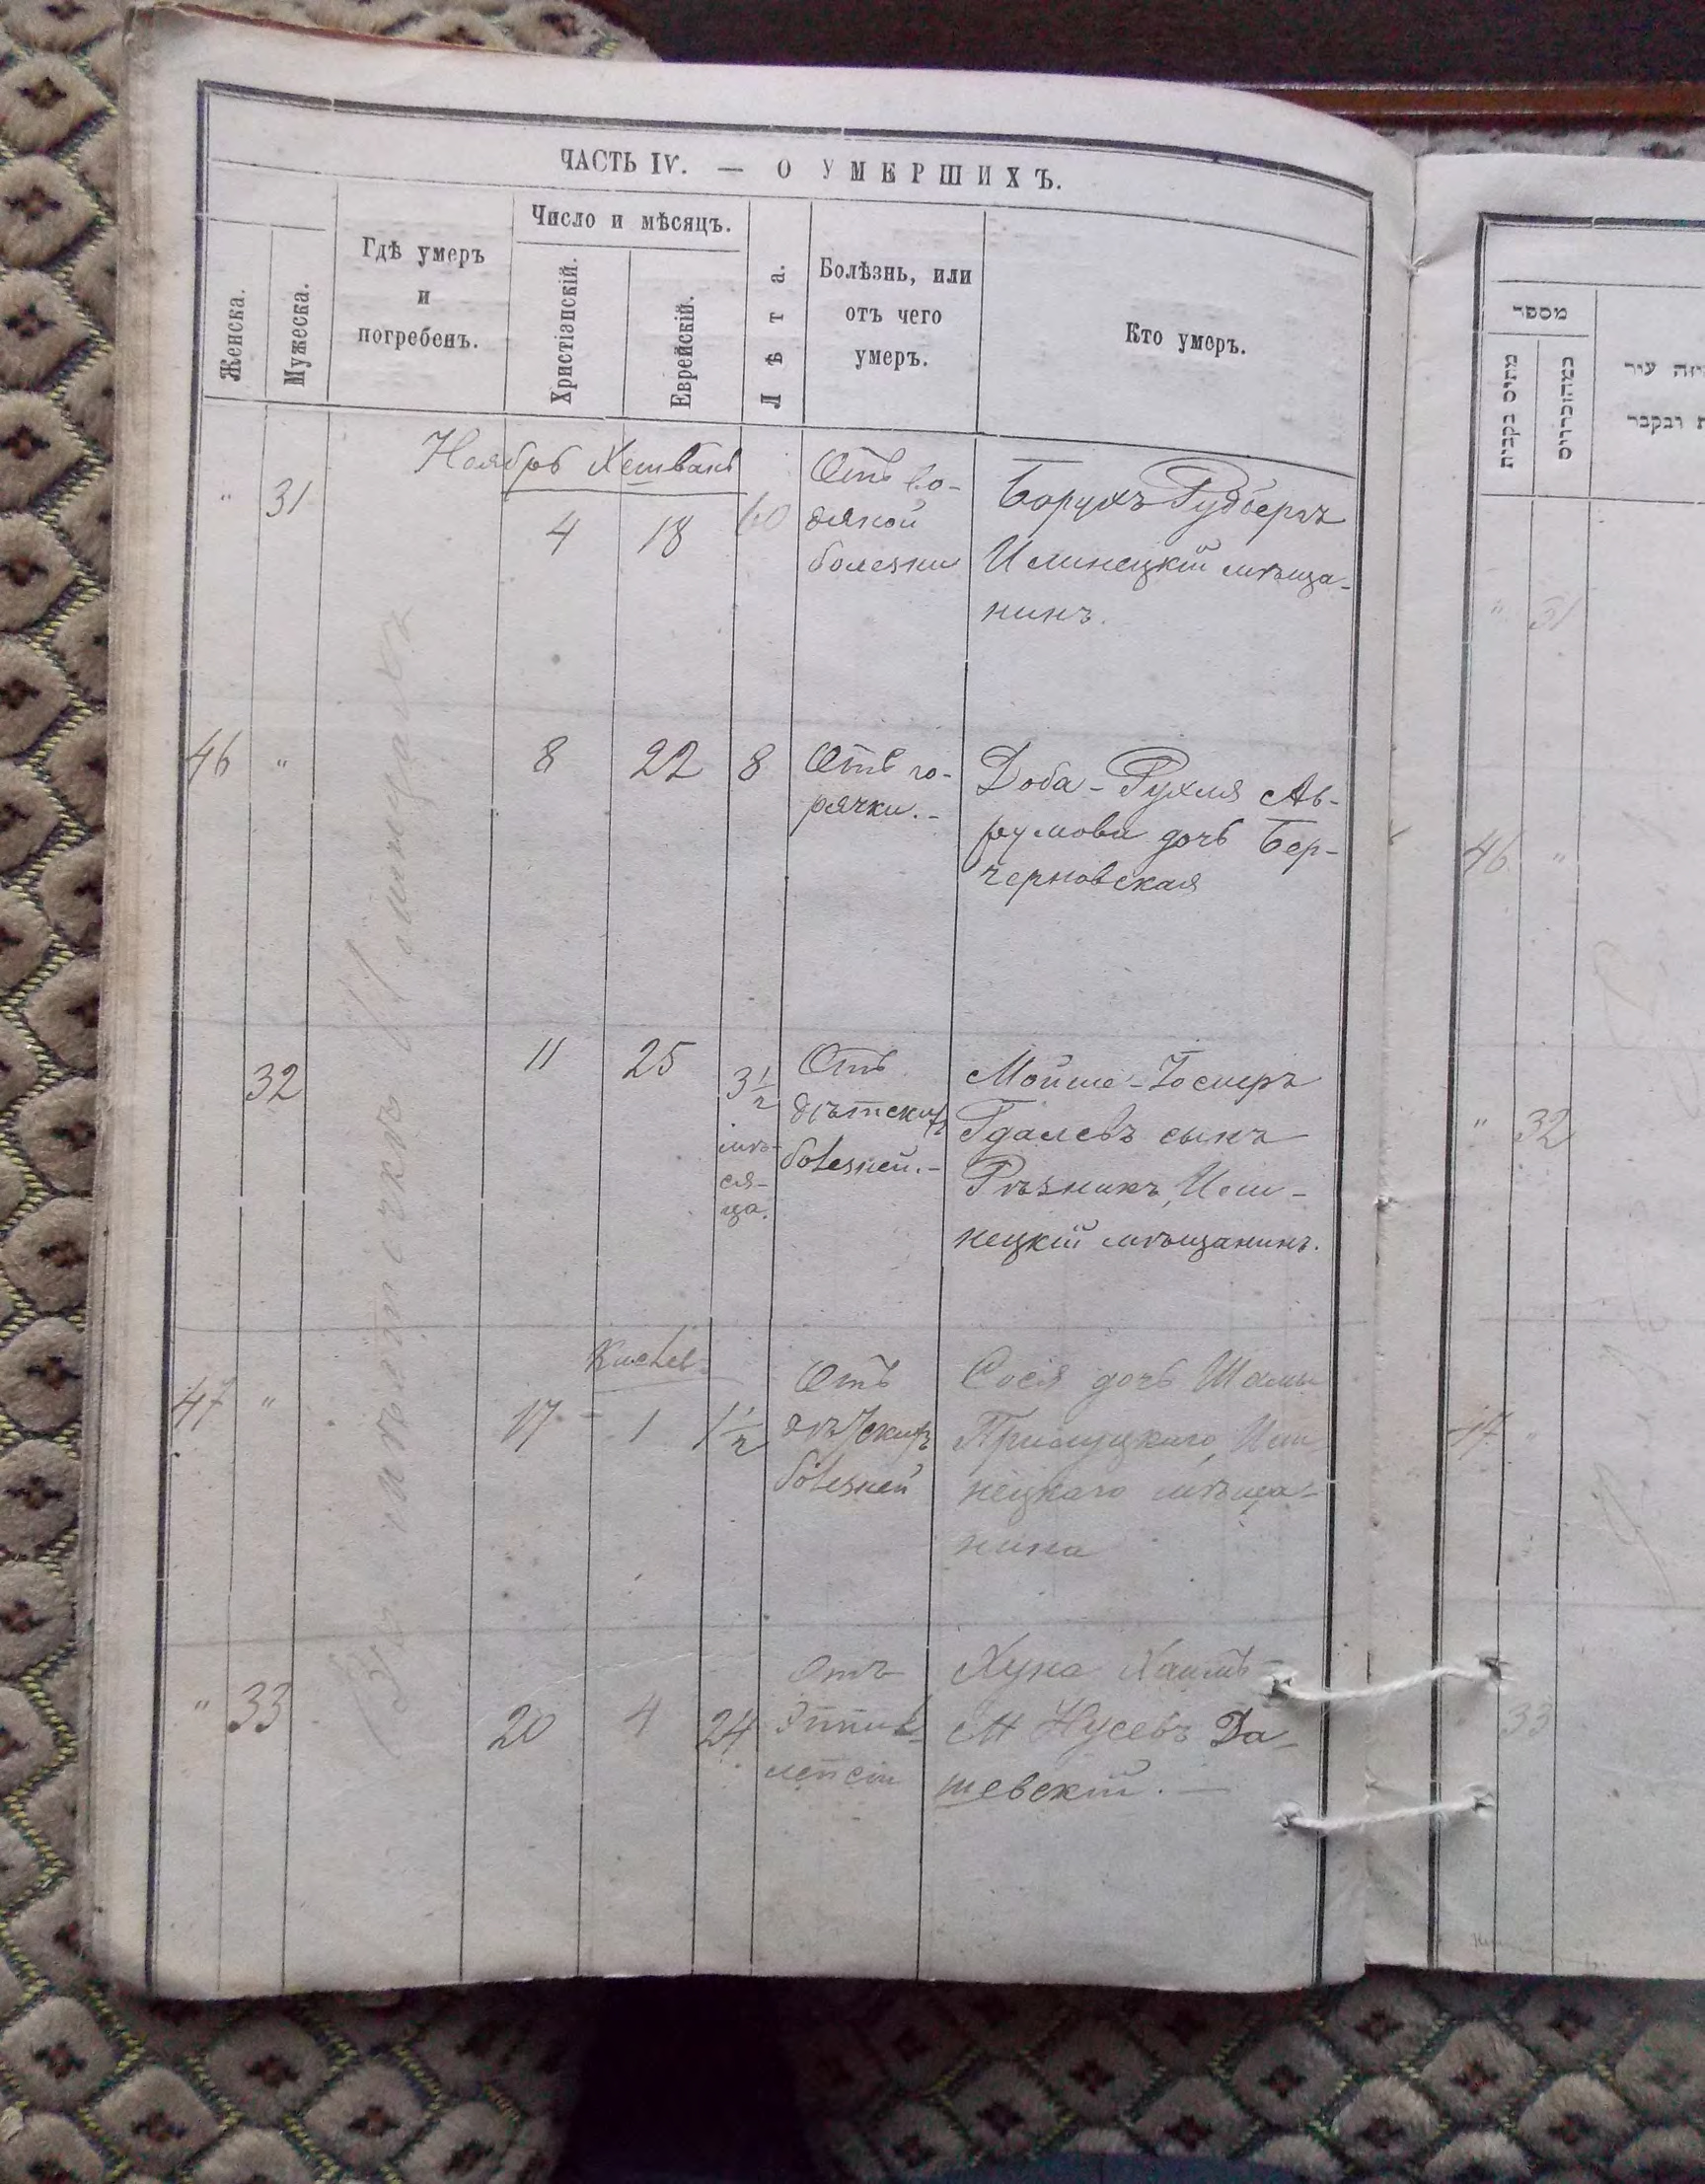 ЧАСТЬ IV. — О УМЕРШИХЪ.
Женска.
Мужеска.
Гдѣ умеръ
и
погребенъ.
Число и мѣсяцъ.
Христіанскій.
Еврейскій.
Лѣта.
Болѣзнь, или
отъ чего
умеръ.
Кто умеръ.
Ноябрь Хешванъ
" 31
4 18 60
Отъ во-
дяной
болезни
Борухъ Рудбергъ
Илинецкій мѣща-
нинъ.
46 "
8 22 8
Отъ го-
рячки.-
Доба-Рухля Ав-
румова дочь Бер-
черновская
32
11 25 3½
мѣ-
ся-
ца.
Отъ
дѣтскихъ
болезней.-
Мойше-Іосиеръ
Гдалевъ сынъ
Рѣзникъ, Или-
нецкій мѣщанинъ.
Кислев
47 "
17 - 1 1½
Отъ
дѣтскихъ
болезней
Сося дочь
Прилуцкаго, Или-
нецкаго мѣща-
нина
" 33
20 4 24
Отъ
эпи-
лепсіи
Хуна Хаимъ-
Нусевъ Да-
шевскій.—
мѣстечкѣ Илинцахъ
מספר
מתים נקבות
" 31
46 "
" 32
47 "
33